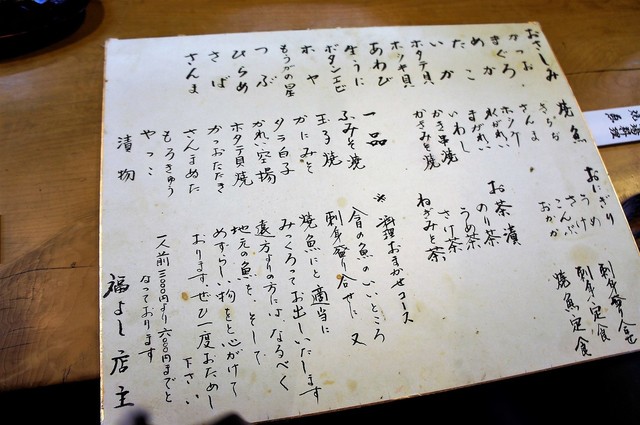 おさしみ
かつお
まぐろ
めか
たこ
いか
ホタテ貝
ホッキ貝
あわび
生うに
ボタンエビ
ホヤ
もうかの星
つぶ
ひらめ
さば
さんま
焼魚
きちぢ
さんま
ホッケ
水がれい
まがれい
いわし
かき串焼
かきみそ焼
一品
ふみそ焼
玉子焼
かにみそ
タラ白子
かれい空揚
ホタテ貝焼
かつおたたき
さんまぬた
もろきゅう
やっこ
漬物
おにぎり
うめ
さけ
こんぶ
おかか
お茶漬
のり茶
うめ茶
さけ茶
ねぎみそ茶
刺身盛り合せ
刺身定食
焼魚定食
※料理おまかせコース
今日の魚のいいところ
刺身盛り合せに又
焼魚にと適当に
みつくろってお出しいたします
遠方よりの方にはなるべく
地元の魚を、そして
めずらしい物をと心がけて
おります、ぜひ一度おためし
下さい
一人前三〇〇〇円より六〇〇〇円までと
なっております
福よし店主